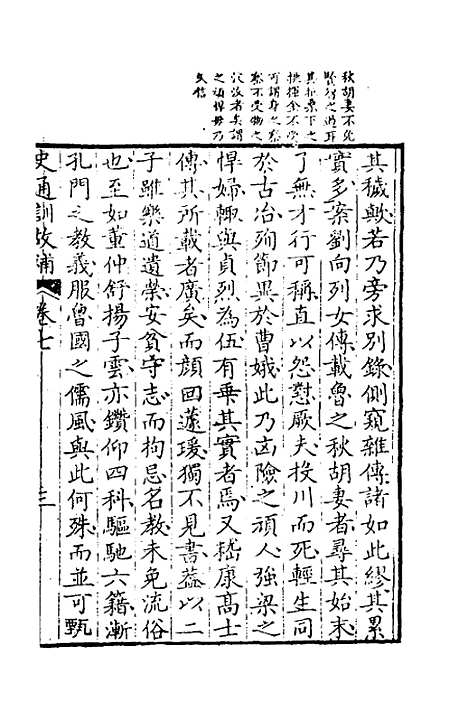 秋胡妻不死
之過耳
其桑下之
金不受
可謂身之察
察不受物之
汶汶者矣謂
之頑悍毋乃
其穢歟若乃旁求別錄側窺雜傳諸如此繆其累
實多案劉向列女傳載魯之秋胡妻者尋其始末
了無才行可稱直以怨懟厥夫投川而死輕生同
於古冶殉節異於曹娥此乃凶險之頑人強梁之
悍婦輒與貞烈為伍有乖其實者焉又嵇康高士
傳其所載者廣矣而顏回蘧瑗獨不見書蓋以二
子雖樂道遺榮安貧守志而拘忌名教未免流俗
也至如董仲舒揚子雲亦鑽仰四科驅馳六籍漸
孔門之教義服魯國之儒風與此何殊而並可甄
史通訓故補 卷七 三